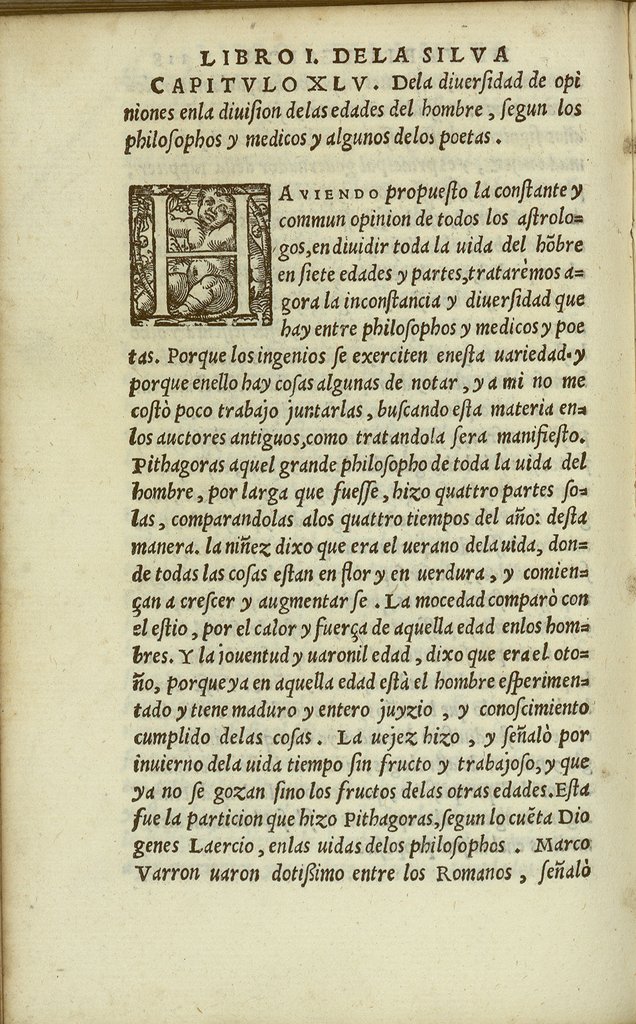 LIBRO I. DELA SILVA
CAPITVLO XLV. Dela diuerſidad de opi
niones enla diuiſion delas edades del hombre, ſegun los
philoſophos y medicos y algunos delos poetas.
HAVIENDO propueſto la conſtante y
commun opinion de todos los aſtrolo=
gos, en diuidir toda la uida del hõbre
en ſiete edades y partes, tratarèmos a=
gora la inconſtancia y diuerſidad que
hay entre philoſophos y medicos y poe
tas. Porque los ingenios ſe exerciten eneſta uariedad. y
porque enello hay coſas algunas de notar, y a mi no me
coſtò poco trabajo juntarlas, buſcando eſta materia en=
los auctores antiguos, como tratandola ſera manifieſto.
Pithagoras aquel grande philoſopho de toda la uida del
hombre, por larga que fueſſe, hizo quattro partes ſo=
las, comparandolas alos quattro tiempos del año: deſta
manera. la niñez dixo que era el uerano dela uida, don=
de todas las coſas eſtan en flor y en uerdura, y comien=
çan a creſcer y augmentarſe. La mocedad comparò con
el eſtio, por el calor y fuerça de aquella edad enlos hom=
bres. Y la jouentud y uaronil edad, dixo que era el oto=
ño, porque ya en aquella edad eſtà el hombre eſperimen=
tado y tiene maduro y entero juyzio, y conoſcimiento
cumplido delas coſas. La uejez hizo, y ſeñalò por
inuierno dela uida tiempo ſin fructo y trabajoſo, y que
ya no ſe gozan ſino los fructos delas otras edades. Eſta
fue la particion que hizo Pithagoras, ſegun lo cuẽta Dio
genes Laercio, enlas uidas delos philoſophos. Marco
Varron uaron dotißimo entre los Romanos, ſeñalò